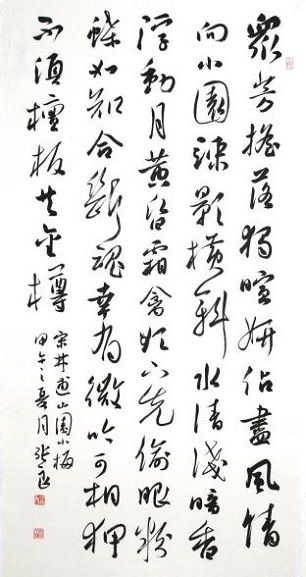 眾芳搖落獨暄妍佔盡風情
向小園疎影橫斜水清淺暗香
浮動月黃昏霜禽欲下先偷眼粉
蝶如知合斷魂幸有微吟可相狎
不須檀板共金樽
宋林逋山園小梅
甲午之春月